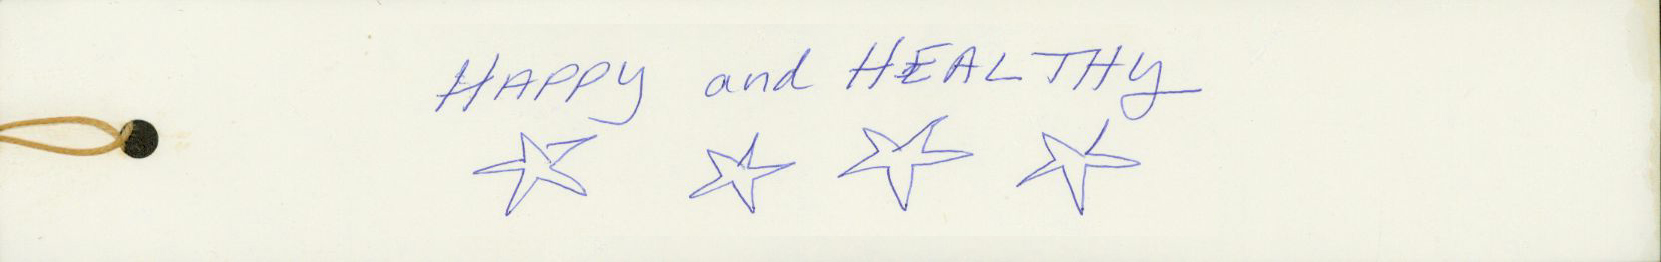 HAPPY and HEALTHY